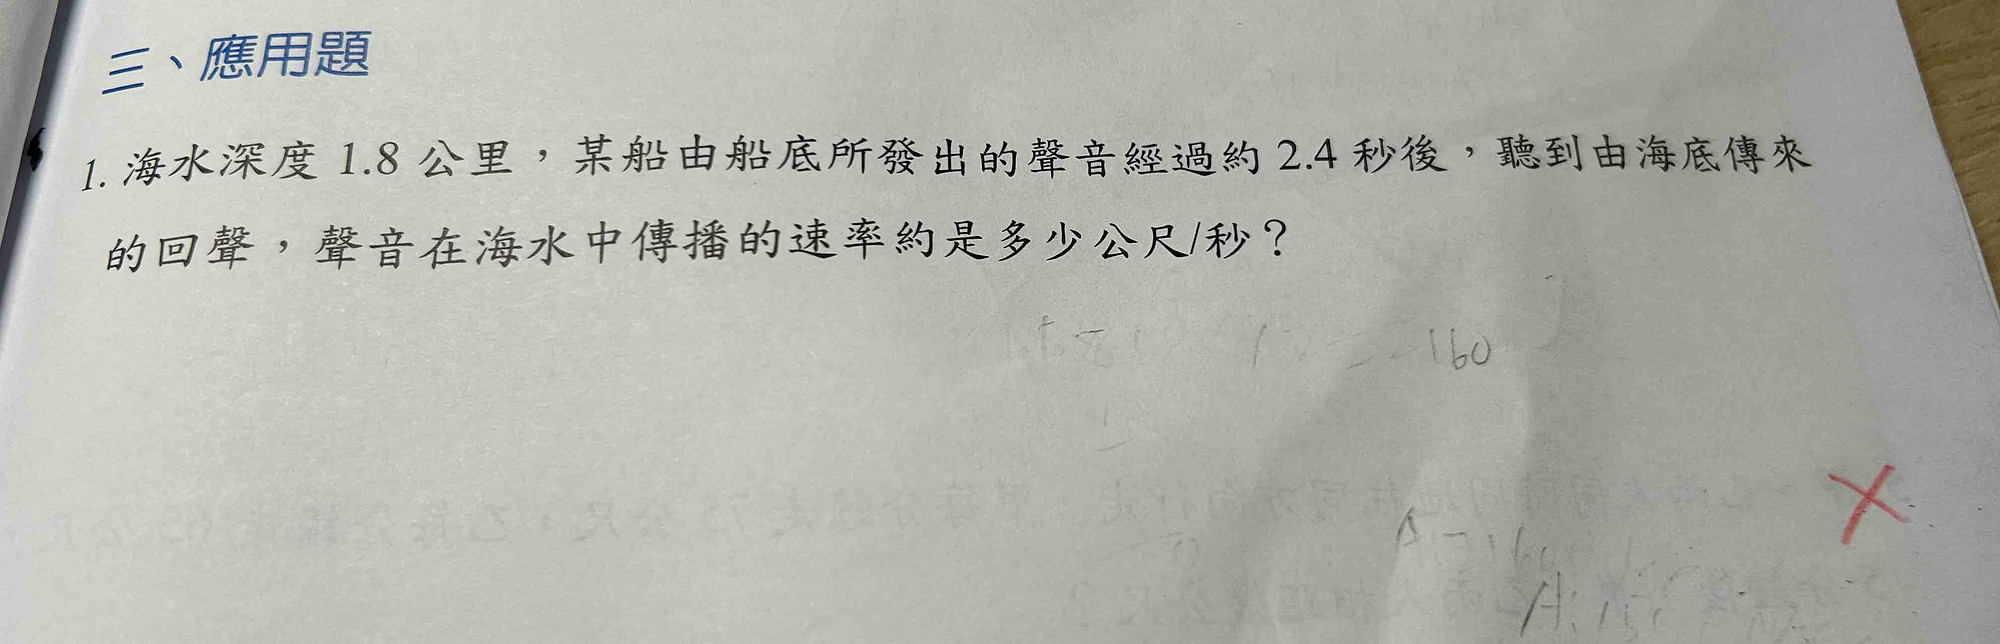 三、應用題
1. 海水深度 1.8 公里，某船由船底所發出的聲音經過約 2.4 秒後，聽到由海底傳來
的回聲，聲音在海水中傳播的速率約是多少公尺/秒？
160